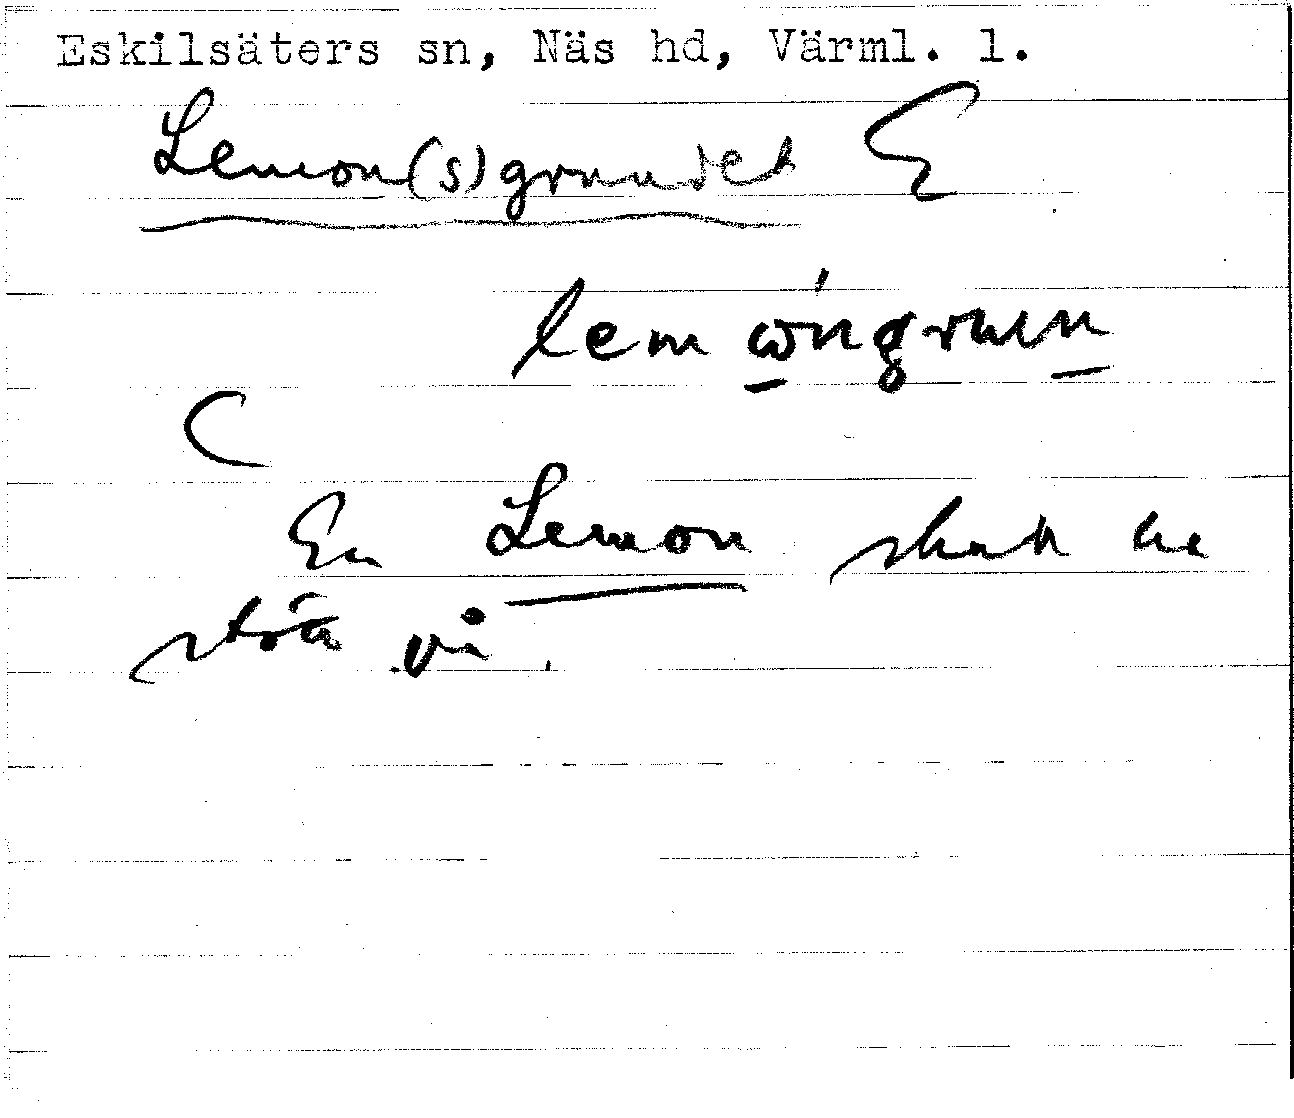 Eskilsäters sn, Näs hd, Värml. l.
Lemon(s)grundet E
lemóngrunn
C
En Lemon skall ha
stött på.